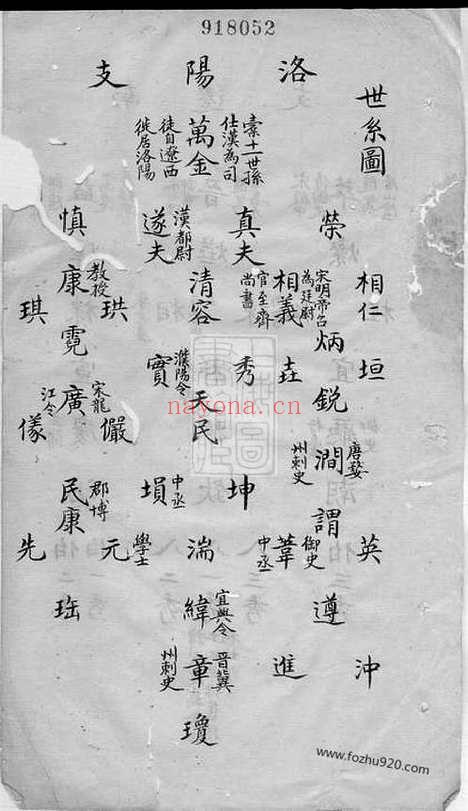 918052
洛陽支
世系圖
相仁 垣 英 沖
榮 炳 銳 澗 唐婺州刺史 謂 遵
相義 宋明帝召為廷尉官至齊尚書 垚 葦 御史中丞 進
真夫 秀 坤
萬金 素十一世孫仕漢為司徒自遼西徙居洛陽 清容 天民 湍 緯 宜興令 章 晉冀州刺史 瓊
遂夫 漢都尉 實 濮陽令 塤 中丞
珙 教授 儼 元 學士
慎 康 霓 廣 宋龍江令 民康 郡博
琪 儀 先
nayona.cn
www.fozhu920.com